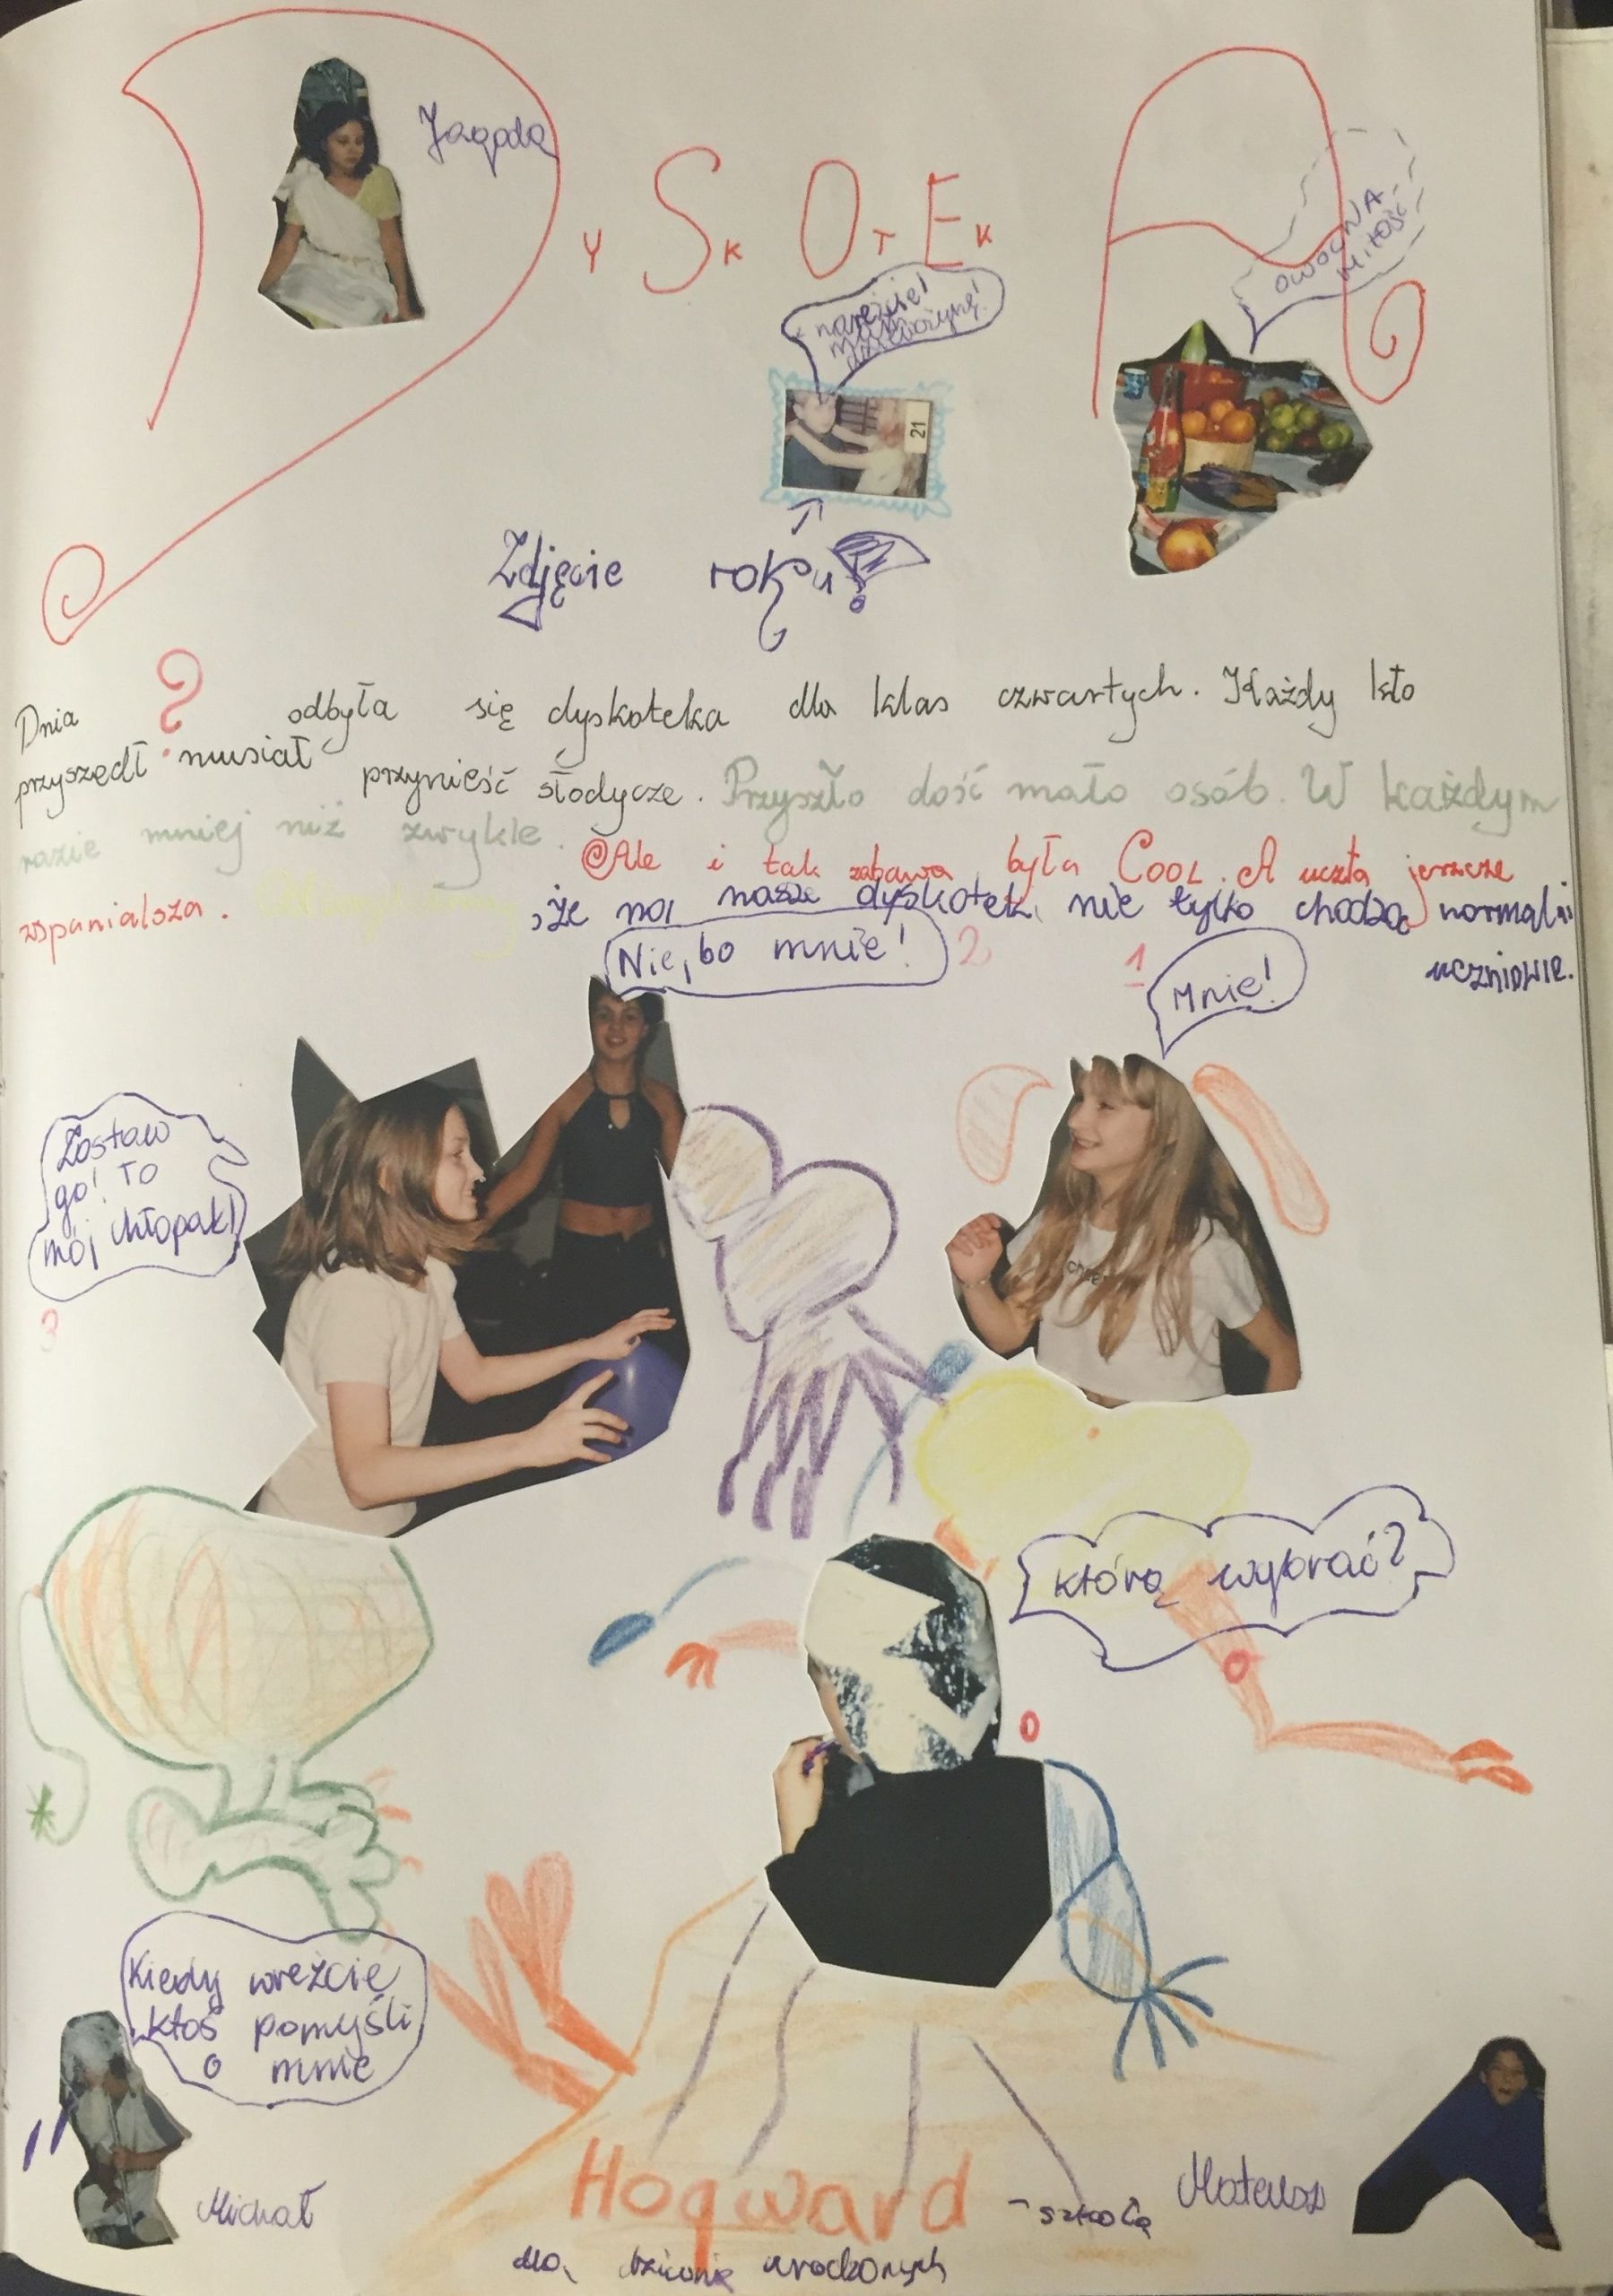 Jagoda
DySkOtEkA
OWOCNA
MIŁOŚĆ
nareźcie!
mam
dziewczynę!
21
Zdjęcie roku!
Dnia ? odbyła się dyskoteka dla klas czwartych. Każdy kto
przyszedł musiał przynieść słodycze. Przyszło dość mało osób. W każdym
razie mniej niż zwykle. Ale i tak zabawa była COOL. A uczta jerzcze
wspanialsza. , że na nasze dyskotek nie tylko chodzą normalni
uczniowie.
Nie, bo mnie! 2
1 Mnie!
Zostaw
go! To
mój chłopak!
3
cheer
którą wybrać?
Kiedy wreźcie
ktoś pomyśli
o mnie
Michał
Mateusz
Hogward - szkoła
dla dziwnie urodzonych